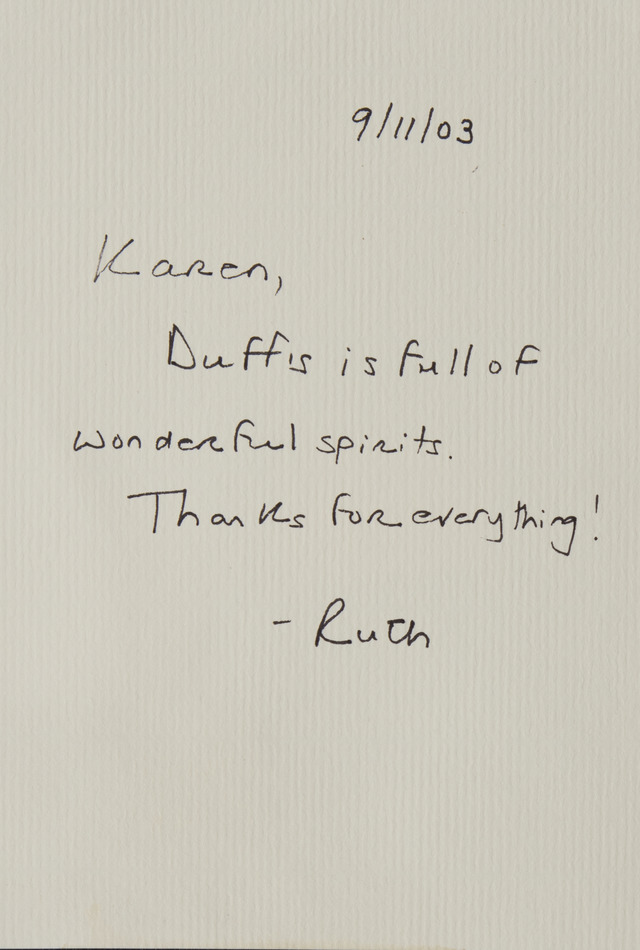 9/11/03
Karen,
Duffis is full of
wonderful spirits.
Thanks for everything!
- Ruth